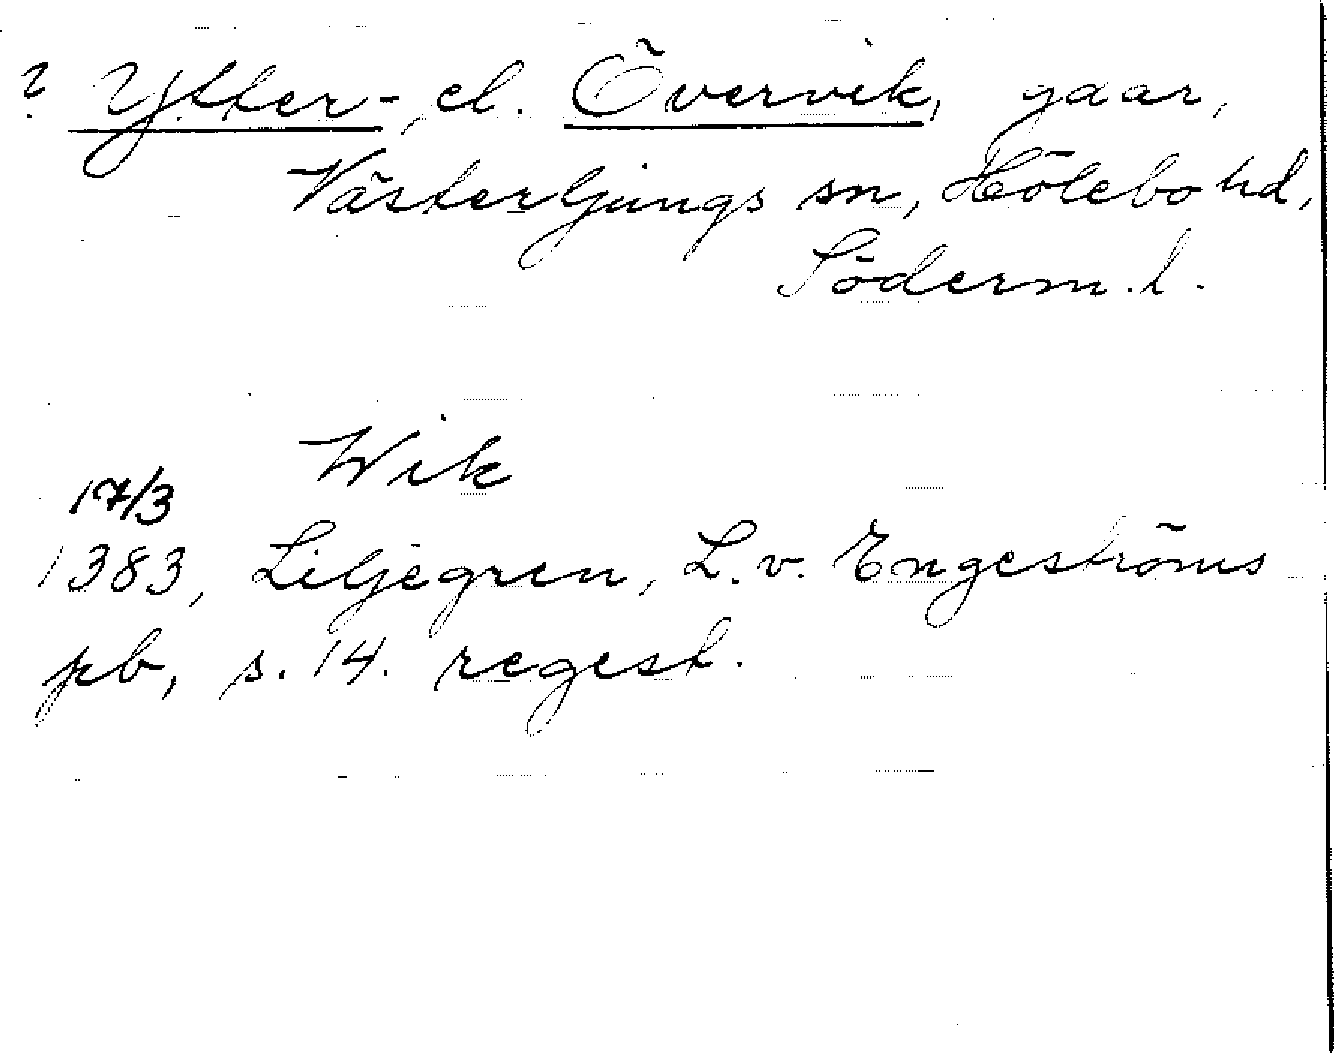 ? Ytter- el. Övervik, gaar,
Västerljungs sn, Hölebo hd,
Söderm. l.
Wik
17/3
1383, Liljegren, L. v. Engeströms
pb, s. 14. regest.